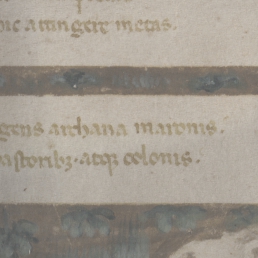 hic attingere metas.
gens archana maronis.
astoribꝫ· atqꝫ colonis.